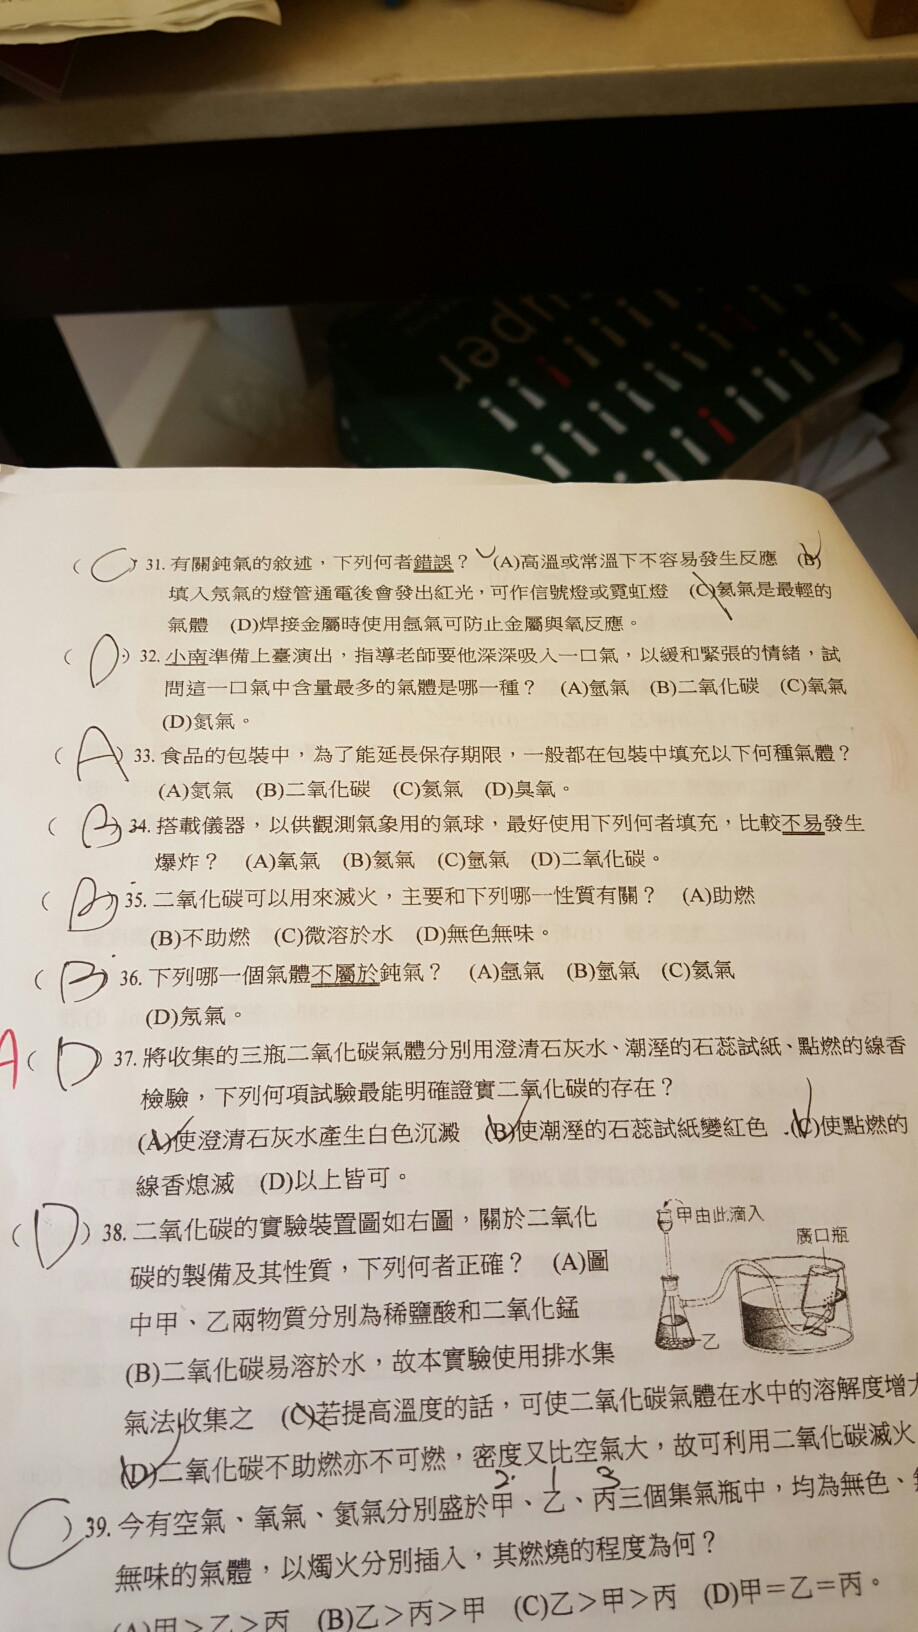 uper
(C) 31. 有關鈍氣的敘述，下列何者錯誤？ (A)高溫或常溫下不容易發生反應 (B)
填入氖氣的燈管通電後會發出紅光，可作信號燈或霓虹燈 (C)氦氣是最輕的
氣體 (D)焊接金屬時使用氬氣可防止金屬與氧反應。
(D) 32. 小南準備上臺演出，指導老師要他深深吸入一口氣，以緩和緊張的情緒，試
問這一口氣中含量最多的氣體是哪一種？ (A)氬氣 (B)二氧化碳 (C)氧氣
(D)氮氣。
(A) 33. 食品的包裝中，為了能延長保存期限，一般都在包裝中填充以下何種氣體？
(A)氮氣 (B)二氧化碳 (C)氦氣 (D)臭氧。
(B) 34. 搭載儀器，以供觀測氣象用的氣球，最好使用下列何者填充，比較不易發生
爆炸？ (A)氧氣 (B)氦氣 (C)氫氣 (D)二氧化碳。
(B) 35. 二氧化碳可以用來滅火，主要和下列哪一性質有關？ (A)助燃
(B)不助燃 (C)微溶於水 (D)無色無味。
(B) 36. 下列哪一個氣體不屬於鈍氣？ (A)氬氣 (B)氫氣 (C)氦氣
(D)氖氣。
A (D) 37. 將收集的三瓶二氧化碳氣體分別用澄清石灰水、潮溼的石蕊試紙、點燃的線香
檢驗，下列何項試驗最能明確證實二氧化碳的存在？
(A)使澄清石灰水產生白色沉澱 (B)使潮溼的石蕊試紙變紅色 (C)使點燃的
線香熄滅 (D)以上皆可。
(D) 38. 二氧化碳的實驗裝置圖如右圖，關於二氧化
碳的製備及其性質，下列何者正確？ (A)圖
中甲、乙兩物質分別為稀鹽酸和二氧化錳
(B)二氧化碳易溶於水，故本實驗使用排水集
氣法收集之 (C)若提高溫度的話，可使二氧化碳氣體在水中的溶解度增大
(D)二氧化碳不助燃亦不可燃，密度又比空氣大，故可利用二氧化碳滅火
甲由此滴入
廣口瓶
乙
2. 1 3
(C) 39. 今有空氣、氧氣、氮氣分別盛於甲、乙、丙三個集氣瓶中，均為無色、
無味的氣體，以燭火分別插入，其燃燒的程度為何？
(A)甲＞乙＞丙 (B)乙＞丙＞甲 (C)乙＞甲＞丙 (D)甲＝乙＝丙。